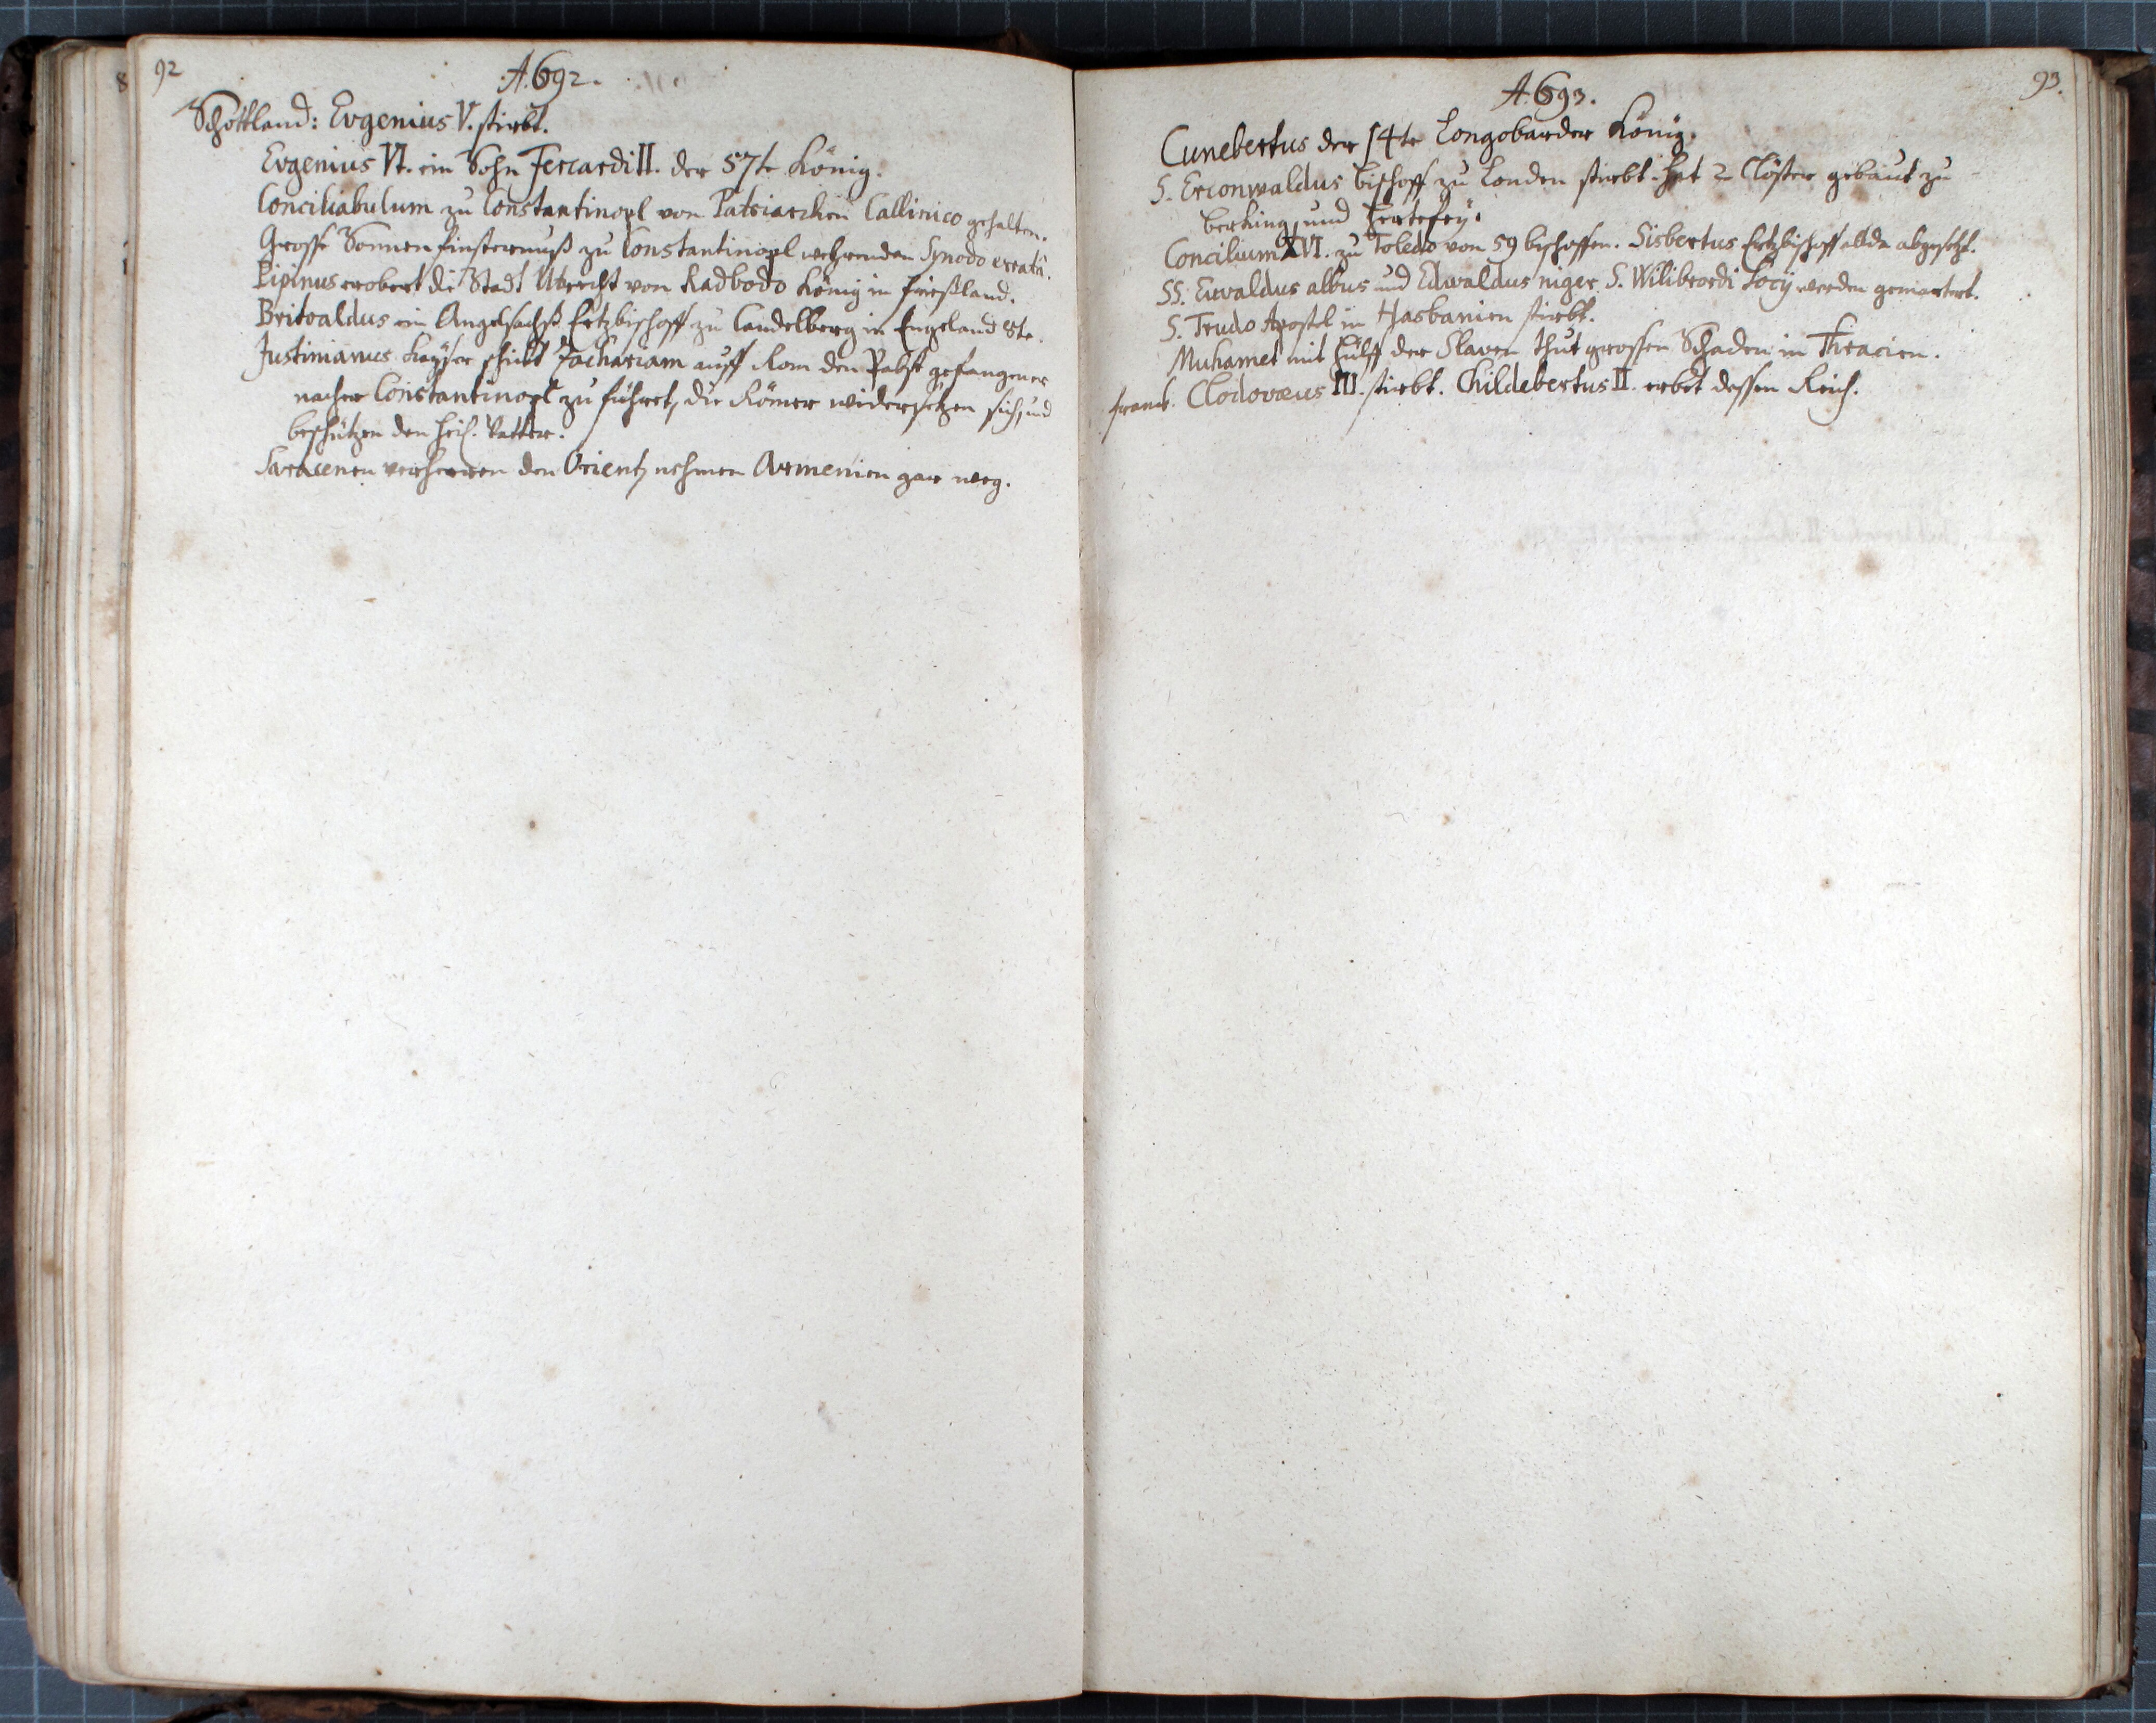 92
A. 692.
Schottland: Evgenius V. stirbt.
Evgenius VI. ein Sohn Fercardi II. der 57te König.
Conciliabulum zu Constantinopl von Patriarchen Callinico gehalten.
Grosse Sonnenfinsternuß zu Constantinopl wehrenden Synodo erratâ.
Pipinus erobert die Stadt Utrecht von Radbodo König in Frießland.
Britoaldus ein Angelsachß Ertzbischoff zu Candelberg in Engeland 8te.
Justinianus Kayser schickt Zachariam auff Rom den Pabst gefangener
nacher Constantinopl zu führen, die Römer widersetzen sich, und
beschützen den heil. Vatter.
Saracenen verheeren den Orient, nehmen Armenien gar weg.
93.
A. 693.
Cunebertus der 14te Longobarder König.
S. Erconwaldus Bischoff zu Londen stirbt. hat 2 Clöster gebaut zu
Berking, und
Concilium XVI. zu Toledo von 59 Bischoffen. Sisbertus Ertzbischoff allda abgesetzt.
SS. Euvaldus albus und Edwaldus niger S. Wilibrordi Socij werden gemartert.
S. Trudo Apostel in Hasbanien stirbt.
Muhamet mit Hülff der Slaven thut grossen Schaden in Thracien.
Franck. Clodovæus III. stirbt. Childebertus II. erbet dessen Reich.